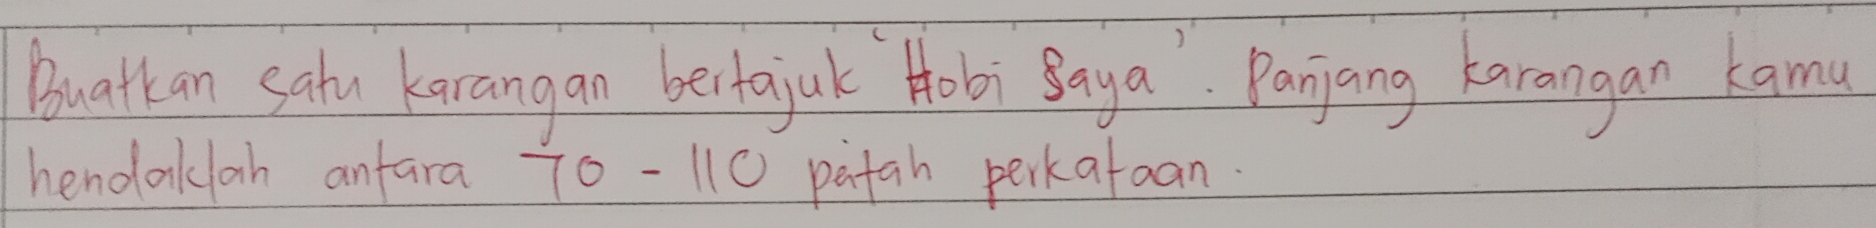 Buatkan satu karangan bertajuk 'Hobi Saya'. Panjang karangan kamu
hendaklah antara 70 - 110 patah perkataan.